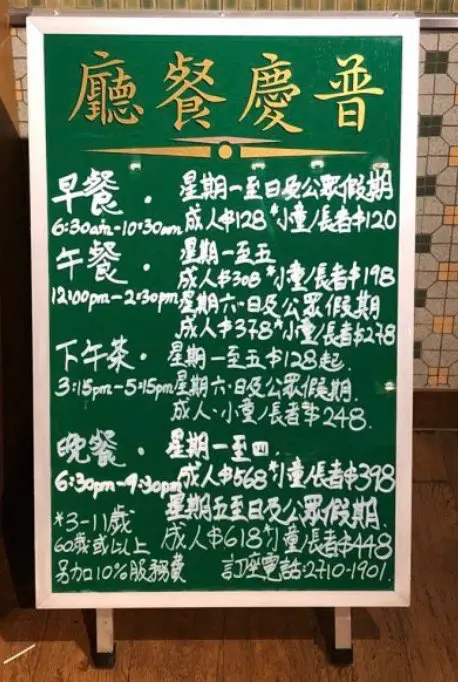 廳餐慶普
早餐. 星期一至日及公眾假期
6:30am-10:30am 成人$128 *小童/長者$120
午餐. 星期一至五
成人$308 *小童/長者$198
12:00pm-2:30pm 星期六.日及公眾假期
成人$378 *小童/長者$278
下午茶. 星期一至五$128起.
3:15pm-5:15pm 星期六.日及公眾假期.
成人、小童/長者$248.
晚餐. 星期一至四
6:30pm-9:30pm 成人$568 *小童/長者$398
星期五至日及公眾假期.
*3-11歲 成人$618 *小童/長者$448
60歲或以上
另加10%服務費 訂座電話:2710-1901.